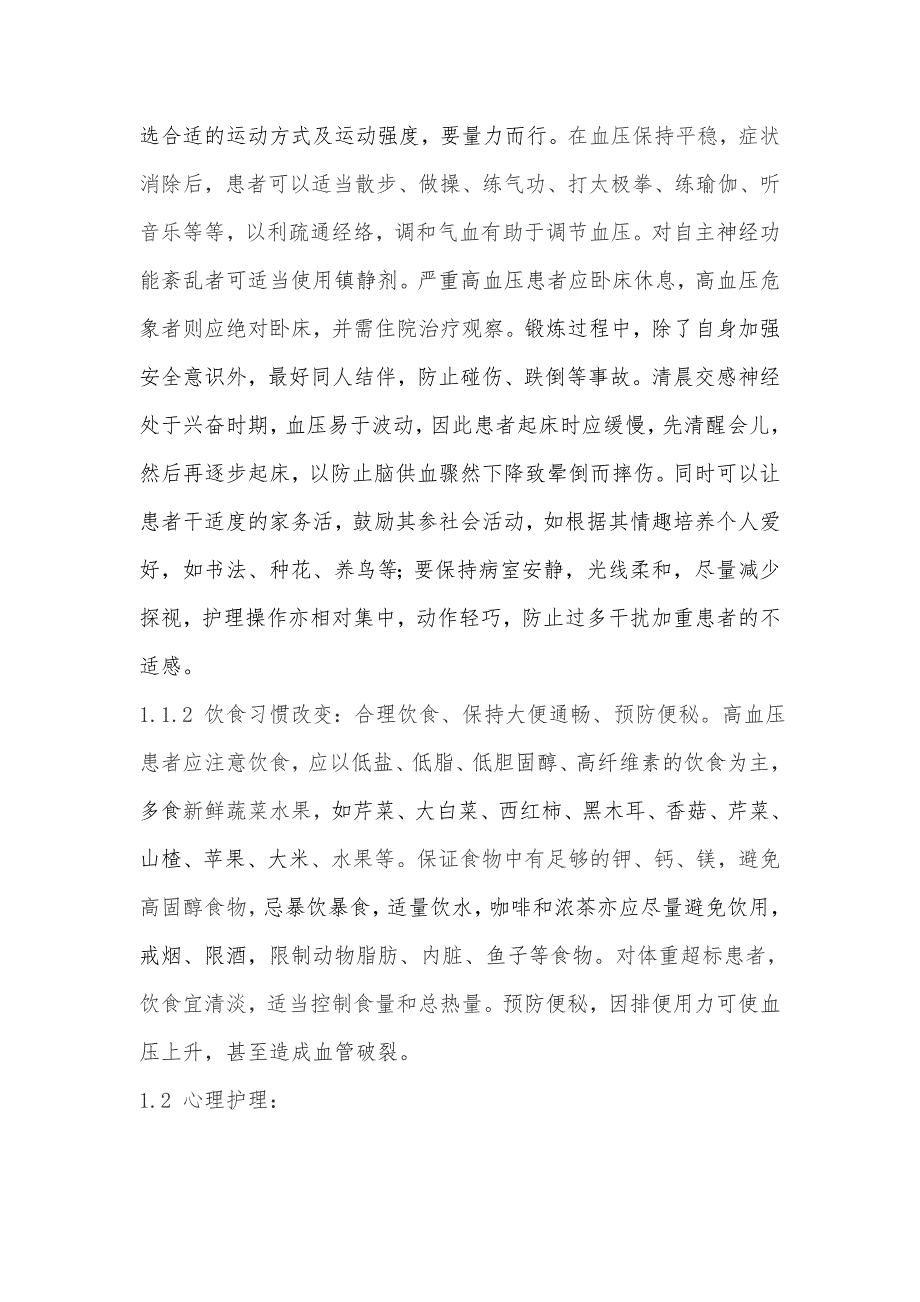 选合适的运动方式及运动强度，要量力而行。在血压保持平稳，症状
消除后，患者可以适当散步、做操、练气功、打太极拳、练瑜伽、听
音乐等等，以利疏通经络，调和气血有助于调节血压。对自主神经功
能紊乱者可适当使用镇静剂。严重高血压患者应卧床休息，高血压危
象者则应绝对卧床，并需住院治疗观察。锻炼过程中，除了自身加强
安全意识外，最好同人结伴，防止碰伤、跌倒等事故。清晨交感神经
处于兴奋时期，血压易于波动，因此患者起床时应缓慢，先清醒会儿，
然后再逐步起床，以防止脑供血骤然下降致晕倒而摔伤。同时可以让
患者干适度的家务活，鼓励其参社会活动，如根据其情趣培养个人爱
好，如书法、种花、养鸟等；要保持病室安静，光线柔和，尽量减少
探视，护理操作亦相对集中，动作轻巧，防止过多干扰加重患者的不
适感。
1.1.2 饮食习惯改变：合理饮食、保持大便通畅、预防便秘。高血压
患者应注意饮食，应以低盐、低脂、低胆固醇、高纤维素的饮食为主，
多食新鲜蔬菜水果，如芹菜、大白菜、西红柿、黑木耳、香菇、芹菜、
山楂、苹果、大米、水果等。保证食物中有足够的钾、钙、镁，避免
高固醇食物，忌暴饮暴食，适量饮水，咖啡和浓茶亦应尽量避免饮用，
戒烟、限酒，限制动物脂肪、内脏、鱼子等食物。对体重超标患者，
饮食宜清淡，适当控制食量和总热量。预防便秘，因排便用力可使血
压上升，甚至造成血管破裂。
1.2 心理护理：